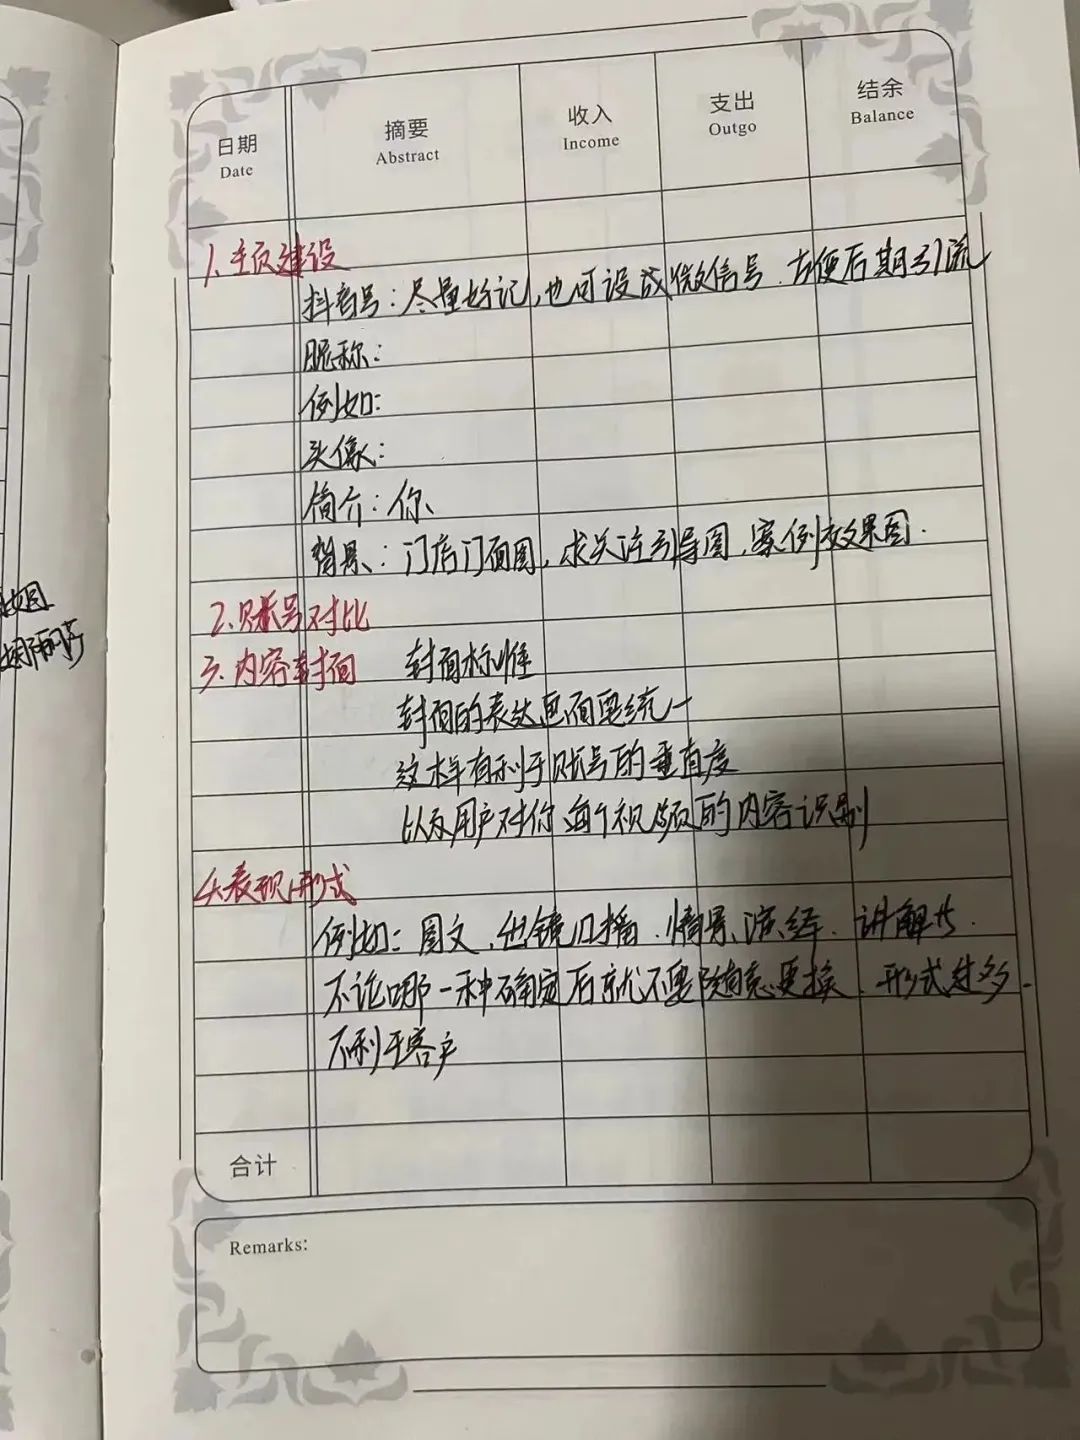 日期 摘要 收入 支出 结余
Date Abstract Income Outgo Balance
1、主页建设
抖音号：尽量好记，也可设成微信号、方便后期引流
昵称：
例如：
头像：
简介：你、
背景：门店门面图，求关注引导图、案例效果图.
2.账号对比
3、内容封面 封面标准
封面的表达画面要统一
这样有利于账号的垂直度
以及用户对你每个视频的内容识别
4、表现形式
例如：图文、出镜口播、情景演绎、讲解
不论哪一种确定后就不要随意更换、形式过多、
不利于客户
合计
Remarks: